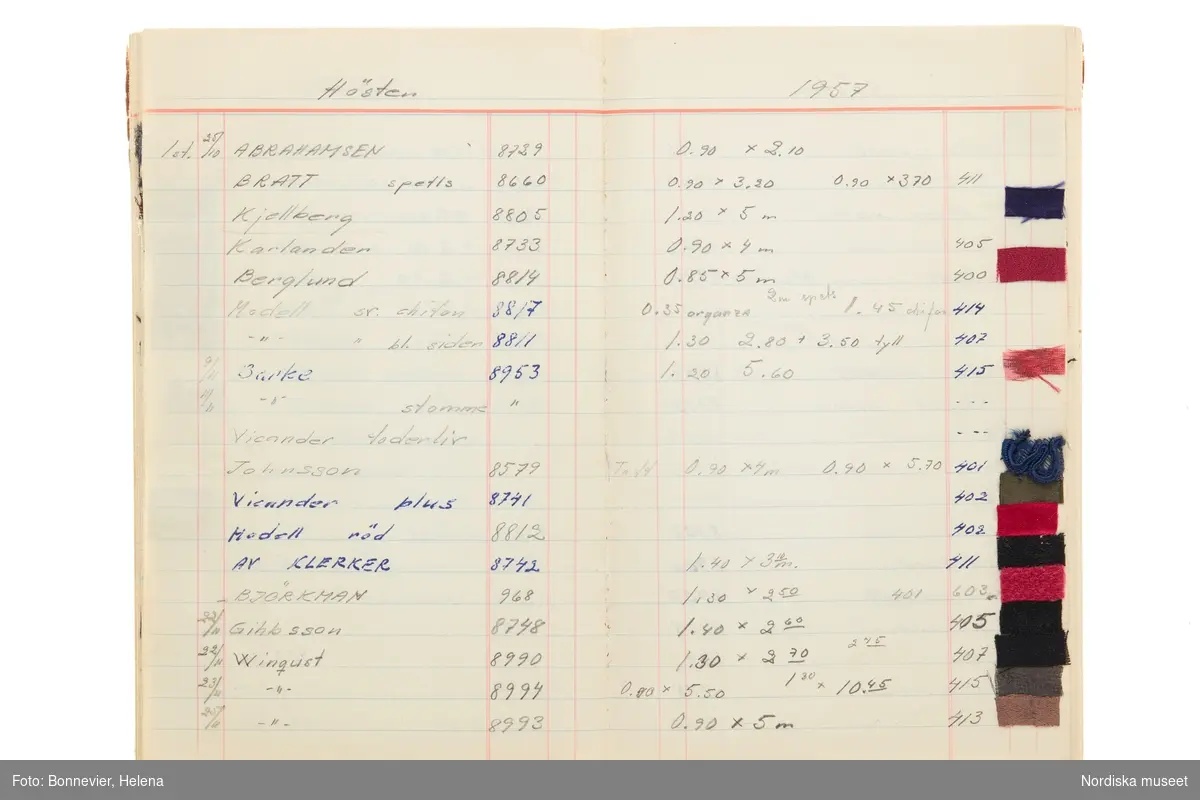 Hösten 1957
25/10 ABRAHAMSEN 8739 0.90 x 2.10
BRATT spetls 8660 0.90 x 3.20 0.90 x 370 411
Kjellberg 8805 1.20 x 5 m
Karlander 8733 0.90 x 4 m 405
Berglund 8814 0.85 x 5 m 400
Modell sv. chifon 8817 0.35 organza 2m spets 1.45 chifon 414
-"- " bl. siden 8811 1.30 2.80 + 3.50 tyll 407
9/11 8953 1.20 5.60 415
-"- stomme " ---
Vicander foderliv ---
Johnsson 8579 0.90 x 4m 0.90 x 5.70 401
Vicander plus 8741 402
Modell röd 8812 402
AV KLERKER 8742 1.40 x 3 m. 411
BJÖRKMAN 968 1.30 x 2 50 401 603
22/11 Gihbsson 8748 1.40 x 2 60 405
22/11 Winquist 8990 1.30 x 2 70 2 45 407
23/11 -"- 8994 0.90 x 5.50 1 30 x 10.45 415
25/11 -"- 8993 0.90 x 5 m 413
Foto: Bonnevier, Helena Nordiska museet